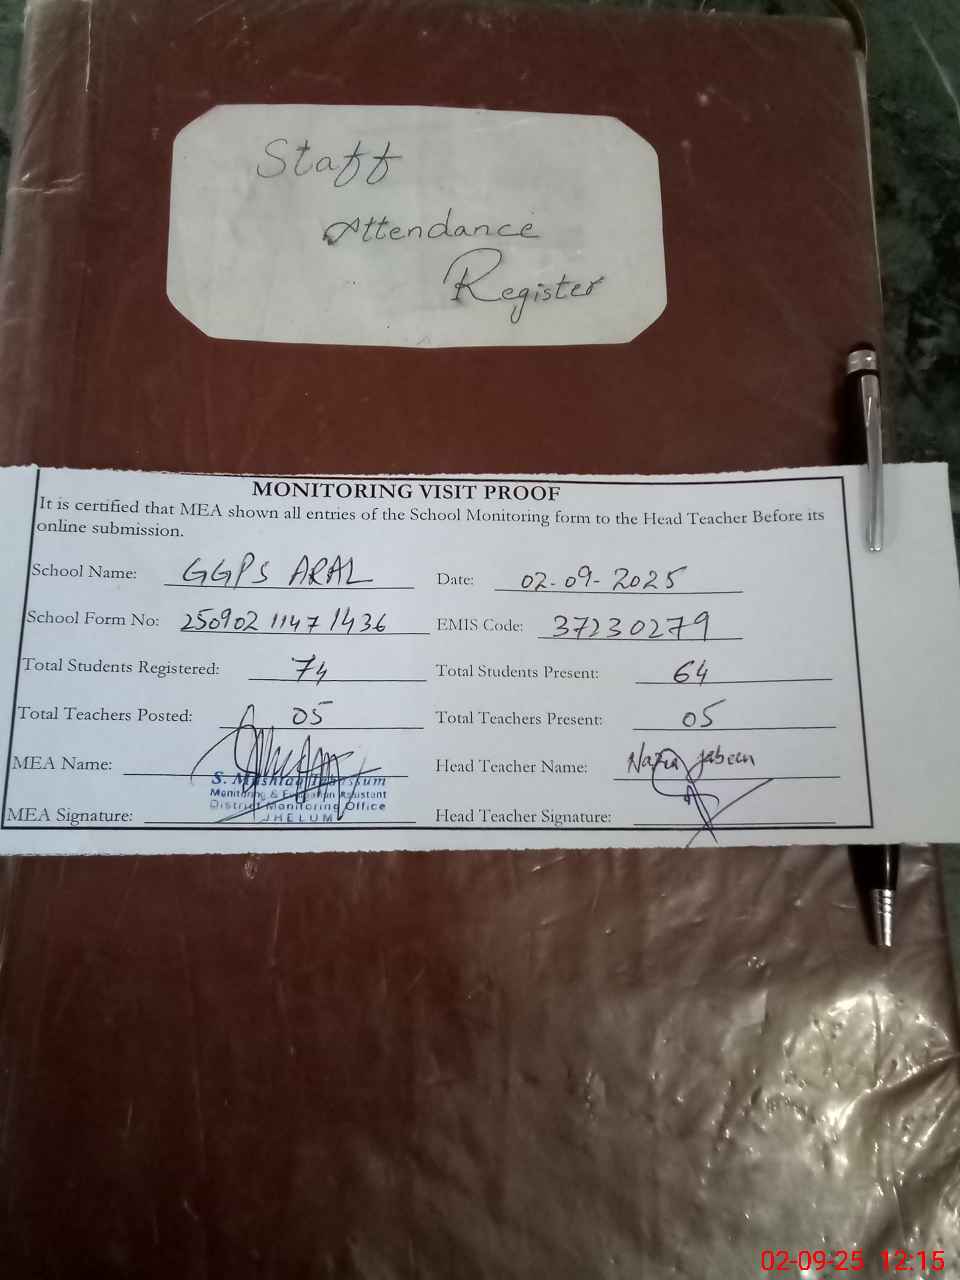 Staff
Attendance
Register
MONITORING VISIT PROOF
It is certified that MEA shown all entries of the School Monitoring form to the Head Teacher Before its
online submission.
School Name: GGPS ARAL Date: 02-09-2025
School Form No: 250902 1147 1436 EMIS Code: 37230279
Total Students Registered: 74 Total Students Present: 64
Total Teachers Posted: 05 Total Teachers Present: 05
MEA Name: Head Teacher Name: Nazia Jabeen
S. Mushtaq
Monitoring & Evaluation Assistant
District Monitoring Office
JHELUM
MEA Signature: Head Teacher Signature:
02-09-25 12:15